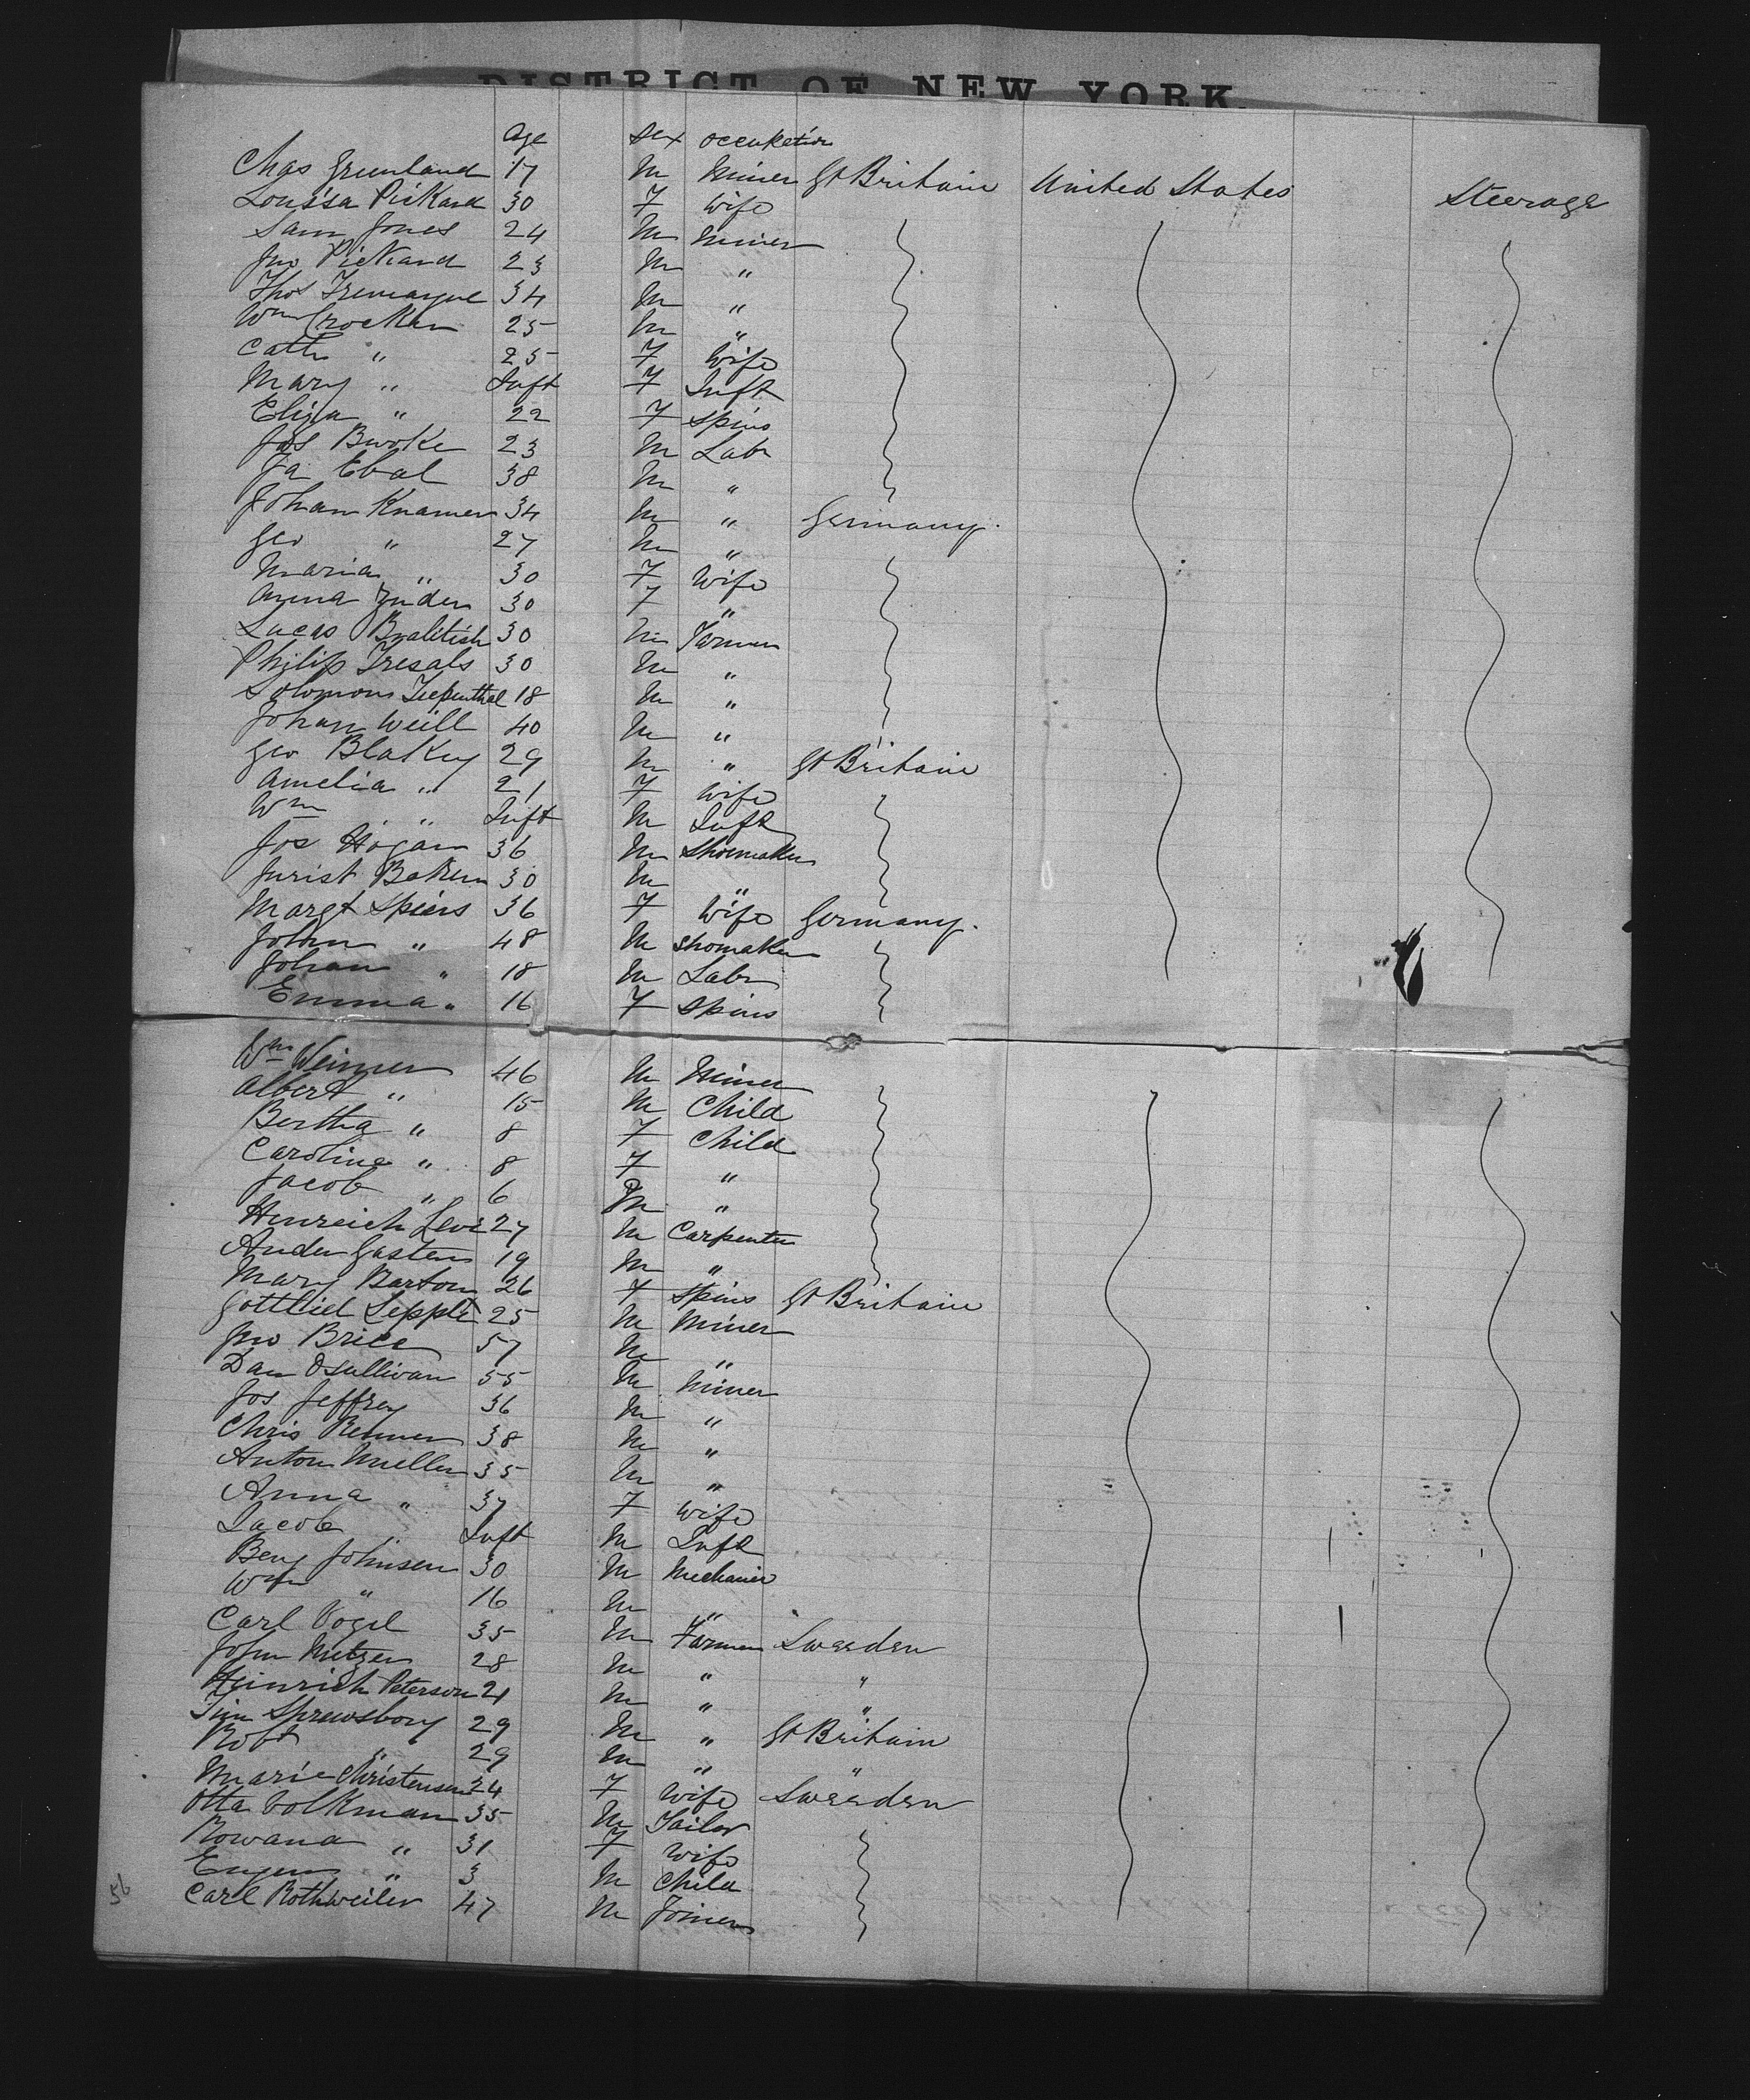 DISTRICT OF NEW YORK.
Age sex occupation
Chas Greenland 17 M Miner Gt Britain United States Steerage
Louisa Pickard 30 F Wife
Sam Jones 24 M Miner
Jno Pickard 23 M "
Thos Tremayne 34 M "
Wm Crocker 25 M "
Cath " 25 F Wife
Mary " Inft F Inft
Eliza " 22 F Spins
Jas Burke 23 M Labr
Ja Ebal 38 M "
Johan Knamer 34 M " Germany.
Geo " 27 M "
Maria " 30 F Wife
Anna 30 F "
Lucas 30 M Farmer
Philip Tresals 30 M "
Solomon 18 M "
Johan Weill 40 M "
Geo Blakey 29 M " Gt Britain
Amelia " 21 F Wife
Wm " Inft M Inft
Jos Hogan 36 M Shoemaker
Baker 30 M "
Margt Spiers 36 F Wife Germany.
John " 48 M Shomaker
Johan " 18 M Labr
Emma " 16 F Spins
Wm Weimer 46 M Miner
Albert " 15 M Child
Bertha " 8 F Child
Caroline " 8 F "
Jacob " 6 M "
Henreich Levi 27 M Carpenter
Ander Gasten 19 M "
Mary Barton 26 F Spins Gt Britain
Gottlieb Lepple 25 M Miner
Jno Brice 57 M "
Dan OSullivan 55 M Miner
Jos Jeffrey 36 M "
Chris Renner 38 M "
Anton Mueller 35 M "
Anna " 37 F Wife
Jacob Inft M Inft
Benj Johnsen 30 M Mechanic
Wm " 16 M "
Carl Vogel 35 M Farmer Sweeden
John Metzer 28 M " "
Heinrich Peterson 21 M " "
Jim Shrewsbory 29 M " Gt Britain
Robt " 29 M " "
Marie Christensen 24 F Wife Sweeden
Otta Volkman 35 M Tailor
Rowana " 31 F Wife
Eugen " 3 M Child
Carl Rothweiler 47 M Joiner
56